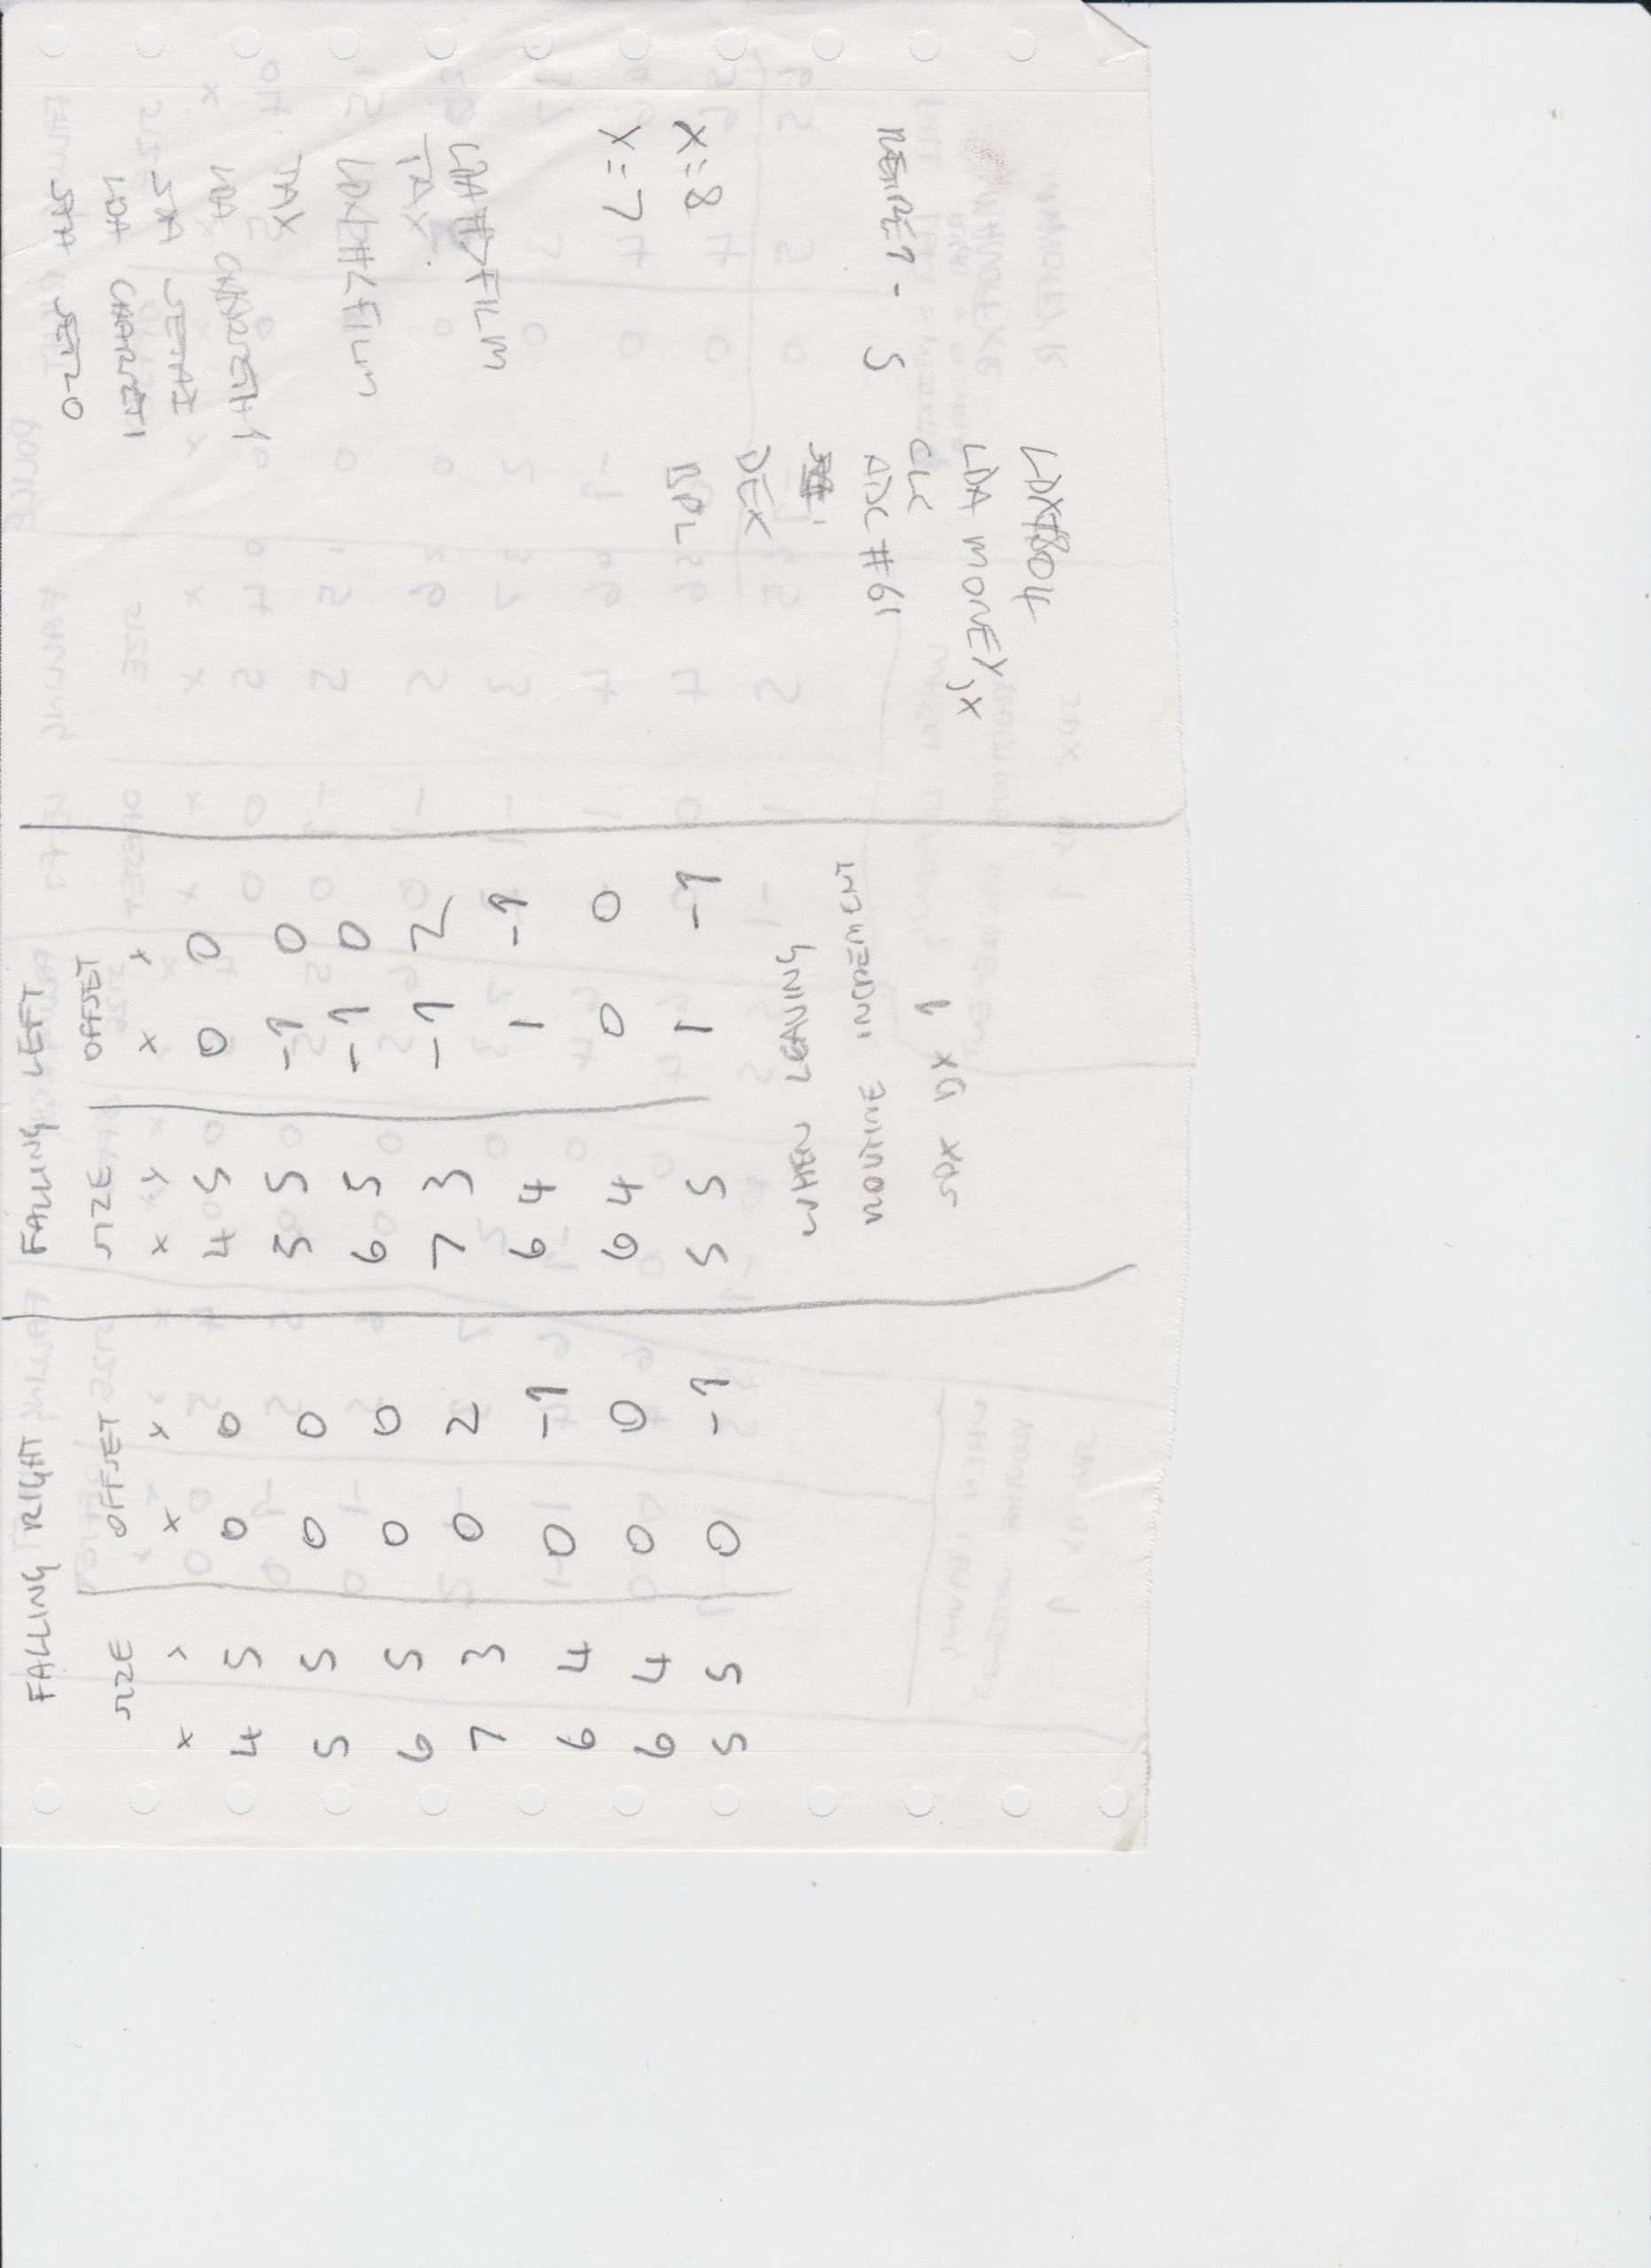 FALLING RIGHT
SIZE OFFSET
X Y X Y
4 5 0 0
5 5 0 0
6 5 0 0
7 3 0 2
6 4 0 -1
6 4 0 0
5 5 0 -1
FALLING LEFT
SIZE OFFSET
X Y X Y
4 5 0 0
5 5 -1 0
6 5 -1 0
7 3 -1 2
6 4 1 -1
6 4 0 0
5 5 1 -1
WHEN LEAVING
ROUTINE INCREMENT
SDX DX 1
LDX#804
LDA MONEY,X
CLC
ADC #61
DEX
BPL
5
X=8
X=7
LDA #>FILM
TAX
LDX#<FILM
TAX
LDA CHARSET+1
STA
LDA CHARSET
STA